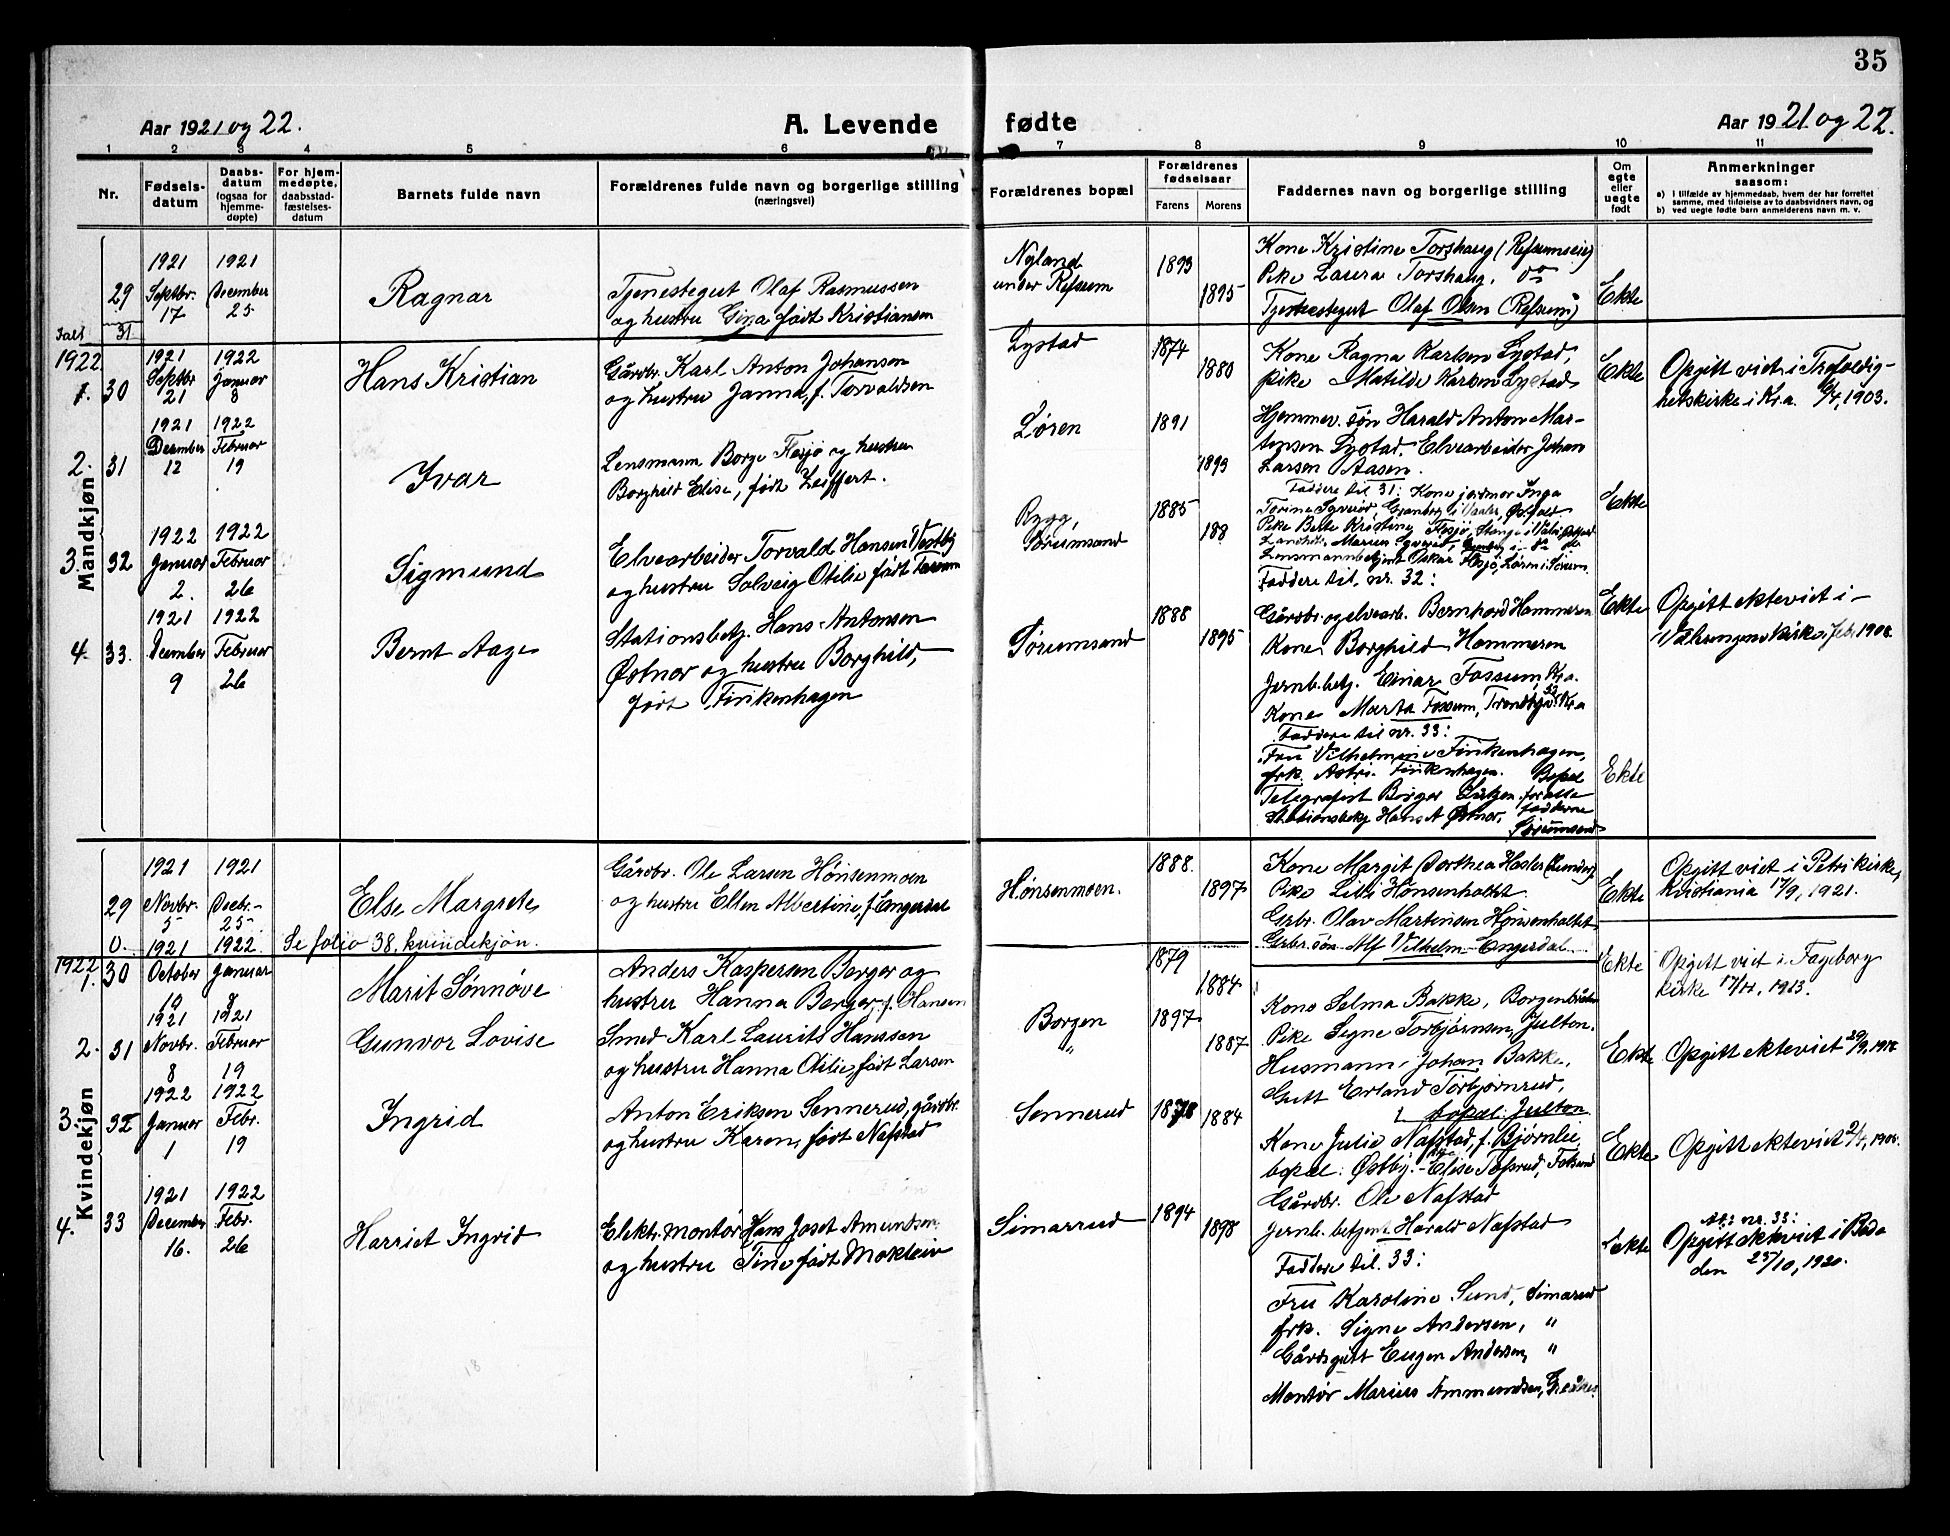 35
Aar 1921 og 22.
A. Levende
fødte
Aar 1921 og 22.
1 2 3 4 5 6 7 8 9 10 11
Nr.
Fødsels-
datum
Daabs-
datum
(ogsaa for
hjemme-
døpte)
For hjem-
medøpte,
daabsstad-
fæstelses-
datum
Barnets fulde navn
Forældrenes fulde navn og borgerlige stilling
(næringsvei)
Forældrenes bopæl
Forældrenes
fødselsaar
Farens Morens
Faddernes navn og borgerlige stilling
Om
egte
eller
uegte
født
Anmerkninger
saasom:
a) I tilfælde av hjemmedaab, hvem der har forrettet
samme, med tilføielse av to daabsvidners navn, og
b) ved uegte fødte barn anmelderens navn m. v.
Mandkjøn
29
1921
Septbr.
17
1921
December
25
Ragnar
Tjenestegut Olaf Rasmussen
og hustru Gina født Kristiansen
Nyland
under Refsum
1893
1895
Kone Kristine Torshaug (Refsumeie)
Pike Laura Torshaug, do
Tjenestegut Olaf Olsen (Refsum)
Ekte
Ialt 31
1922
1. 30
1921
Septbr
21
1922
Januar
8
Hans Kristian
Gårdbr. Karl Anton Johansen
og hustru Janna, f. Torvaldsen
Lystad
1874
1880
Kone Ragna Karlsen Lystad,
pike Matilde Karlsen Lystad
Hjemmev. søn Harald Anton Mar-
tinsen Lystad. Elvearbeider Johan
Larsen Aasen.
Ekte
Opgitt viet i Trefoldig-
hetskirke i Kr.a. 1903.
2. 31
1921
December
12
1922
Februar
19
Ivar
Lensmann Borge Flesjø og hustru
Borghild Elise, født Leiffert.
Løren
1891
1893
Faddere til 31: Kone jordmor Inga
Pike Berte Kristine Flesjø,
Lensmannbetjent Oskar Flesjø, Løren i Sørum.
Ekte
3. 32
1922
Januar
2.
1922
Februar
26
Sigmund
Elvearbeider Torvald Hansen Vestby
og hustru Solveig Otilie født Fossum
Rygg,
Sørumsand
1885
188
Faddere til nr. 32:
Gårdbr. og elvearb. Bernhard Hammeren
Kone Borghild Hammeren
Jernb.betj. Einar Fossum, Kr.a.
Kone Marta Fossum, Kr.a
Ekte
Opgitt ekteviet i
Vålerengens kirke i febr. 1908.
4. 33.
1921
December
9
1922
Februar
26
Bernt Aage
Stationsbetj. Hans Antonsen
Østnor og hustru Borghild,
født Finkenhagen
Sørumsand
1888
1895
Faddere til nr. 33:
Fru Vilhelmine Finkenhagen,
frk. Astri Finkenhagen.
Telegrafist Borger
Stationsbetj Hans A Østnor.
Bopæl
for alle
fadderne
Sørumsand
Ekte
Kvindekjøn
29
1921
Novbr.
5
1921
Decbr.
25
Else Margrete
Gårdbr. Ole Larsen Hønsenmoen
og hustru Ellen Albertine, f. Engerdal
Hønsenmoen.
1888.
1897
Kone Margit Dorthea Hasler (Lunder),
Pike Lilli Hønsenholtet.
Grbr. Olav Martinsen Hønsenholtet
Grbr.søn Alf Vilhelm Engerdal
Ekte
Opgitt viet i Petri kirke,
Kristiania 17/9, 1921.
0.
Se folio 38, kvindekjøn.
1922
1. 30
1921
October
10
1922
Januar
8
Marit Sønnøve
Anders Kaspersen Berger og
hustru Hanna Berger, f. Hansen
1879
1884
Ekte
Opgitt viet i Fageborg
kirke 1913.
2. 31
1921
Novbr.
8
1921
Februar
19
Gunvor Lovise
Smed Karl Laurits Hanssen
og hustru Hanna Otilie født Larsen
Borgen
"
1897
1887
Kone Selma Bakke, Borgen
Pike Signe Torbjørnsen, Julton.
Husmann Johan Bakke,
Gutt Erland Torbjørnrud,
bopæl: Julton
Ekte
Opgitt ekteviet
3. 32
1922
Januar
1
1922
Febr.
19
Ingrid
Anton Eriksen Sennerud, gårdbr.
og hustru Karen, født Nafstad
Sennerud
1878
1884
Kone Julie Nafstad, f. Bjørnlie,
bopæl: Østby. Elise
Gårdbr. Ole Nafstad
Jernb. betjent Harald Nafstad
Ekte
Opgitt ekteviet
4. 33
1921
December
16.
1922
Febr.
26
Harriet Ingrid
Elektr. montør Hans Josef Amundsen
og hustru Tine født Moklein
Simarrud
1894
1898
Faddere til 33:
Fru Karoline Sund, Simarud
frk. Signe Andersen, "
Gårdsgutt Eugen Andersen, "
Montør Marius Ammundsen,
Ekte
nr. 33:
Opgitt ekteviet i Bodø
den 25/10, 1920.